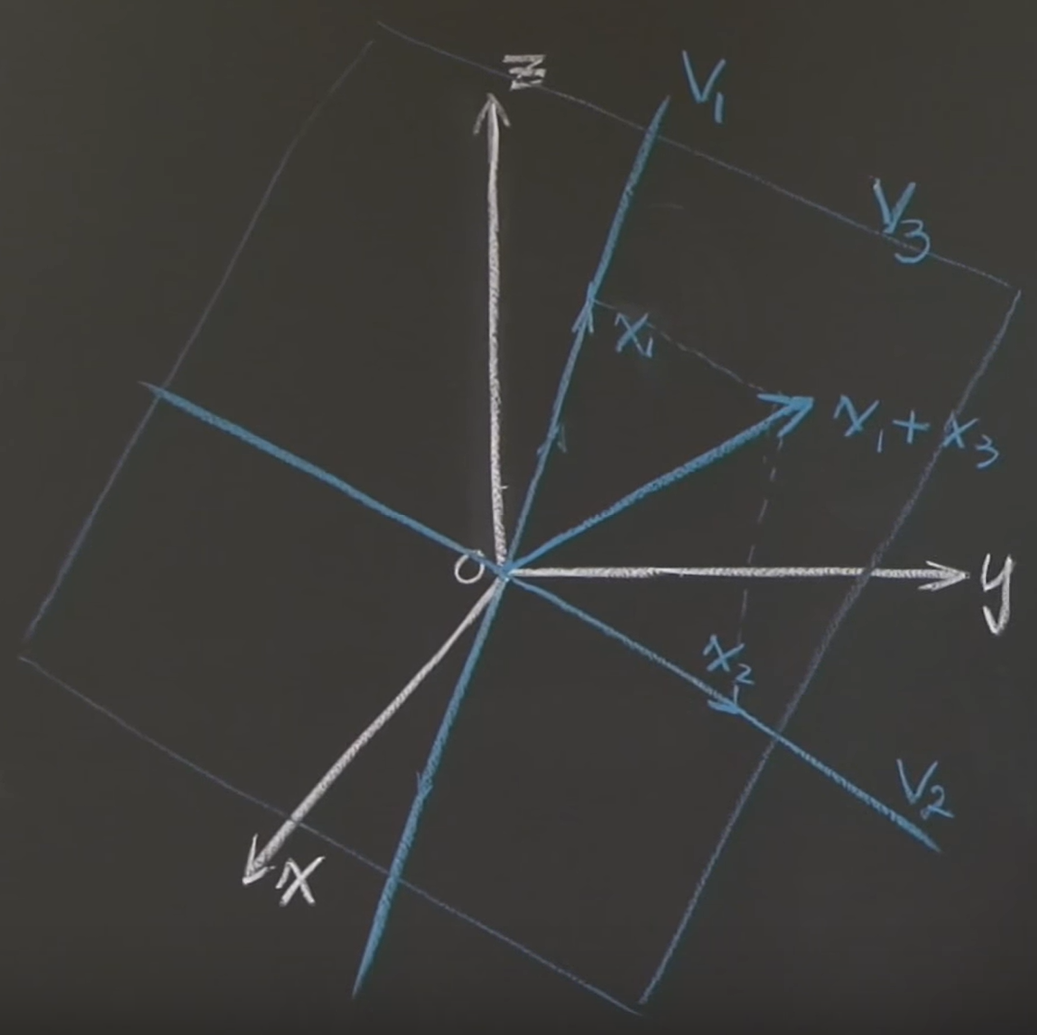 z
V₁
V₃
x₁
x₁ + x₃
O
y
x₂
V₂
x